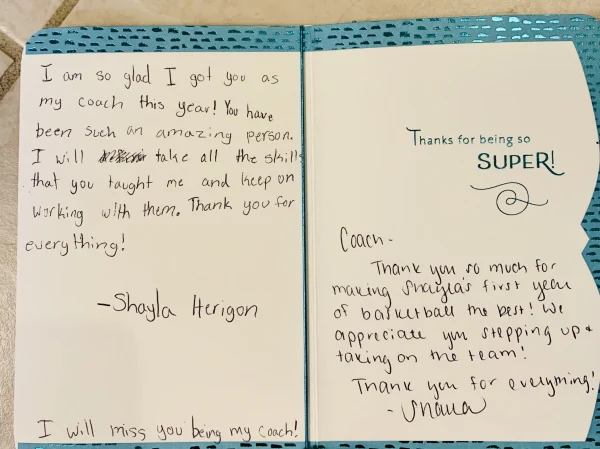 I am so glad I got you as
my coach this year! You have
been such an amazing person.
I will take all the skills
that you taught me and keep on
working with them. Thank you for
everything!
-Shayla Herigon
I will miss you being my coach!
Thanks for being so
SUPER!
Coach-
Thank you so much for
making Shayla's first year
of basketball the best! We
appreciate you stepping up &
taking on the team!
Thank you for everything!
-Shana